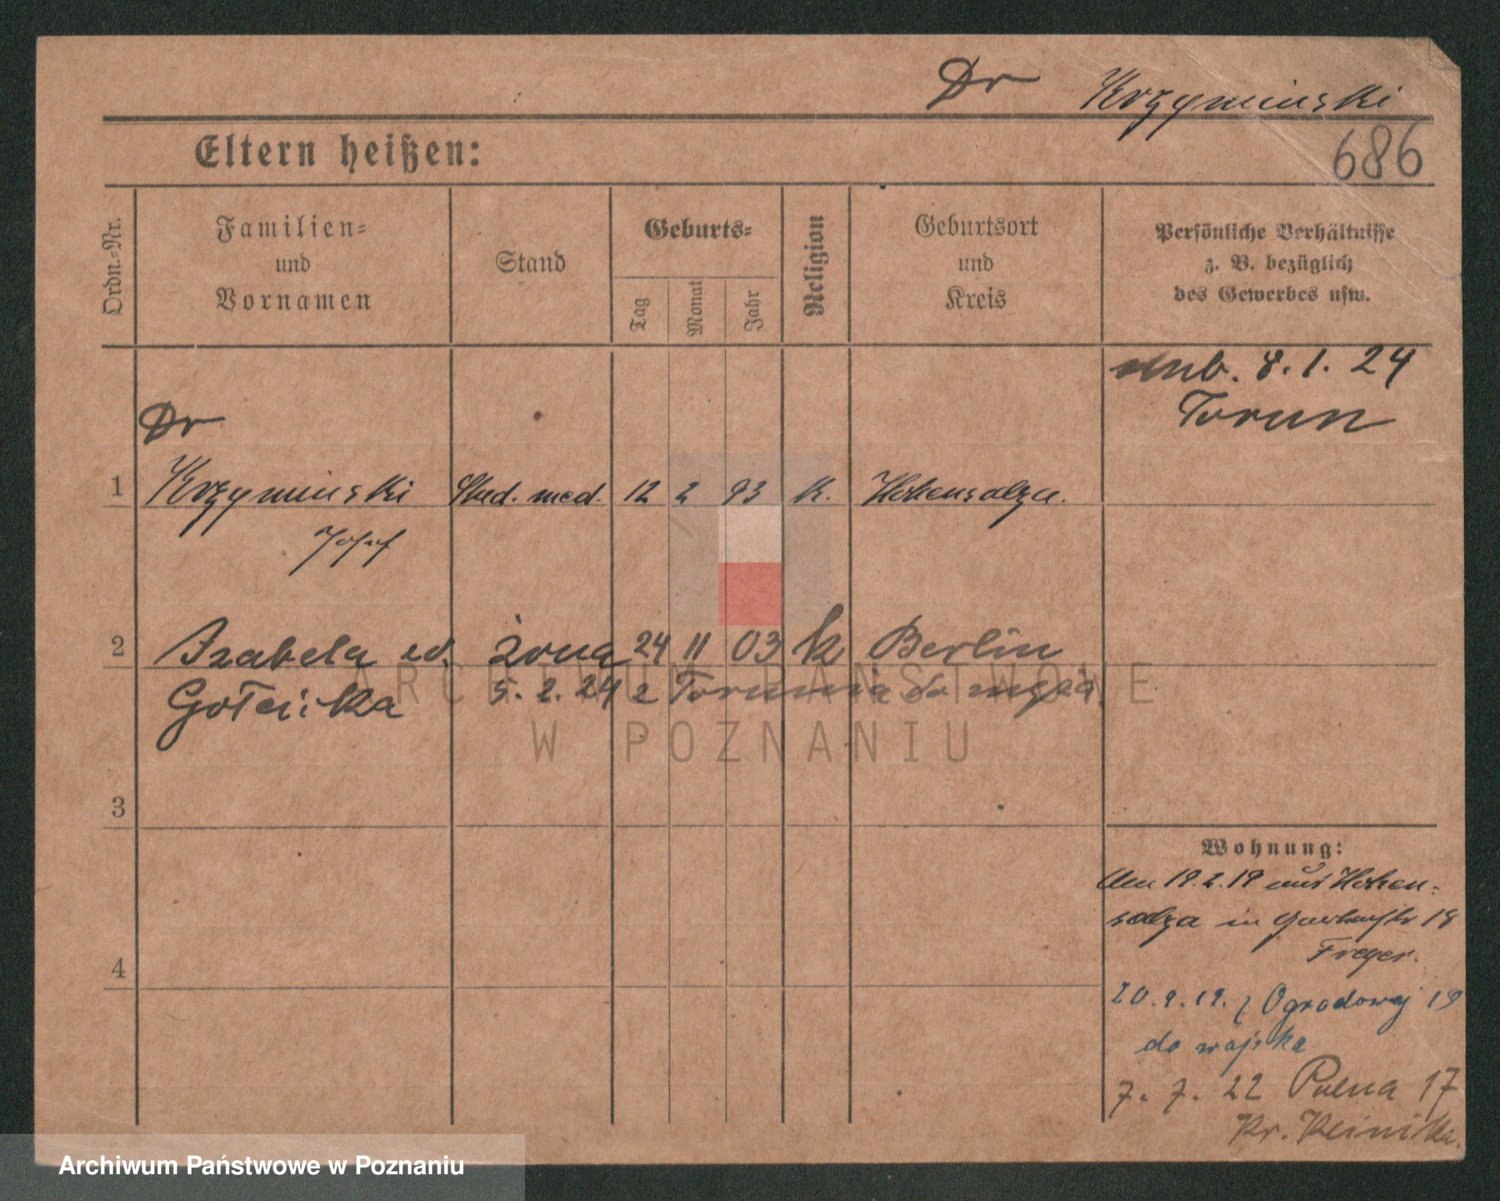 Dr Krzyminski
686
Eltern heißen:
Ordn.-Nr.
Familien-
und
Vornamen
Stand
Geburts-
Tag
Monat
Jahr
Religion
Geburtsort
und
Kreis
Persönliche Verhältnisse
z. B. bezüglich
des Gewerbes usw.
8. 1. 24
Torun
Dr
1 Krzyminski Stud. med. 12 2 93 K. Hohensalza.
Josef
2 Izabela żona 24 11 03 k Berlin
5. 2. 24 z Torunia do męża
3
4
Wohnung:
Am 19.2.19 aus Hohen-
salza in 18
20.9.19. z Ogrodowej 19
do wojska
7. 7. 22 Polna 17
ARCHIWUM PAŃSTWOWE
W POZNANIU
Archiwum Państwowe w Poznaniu